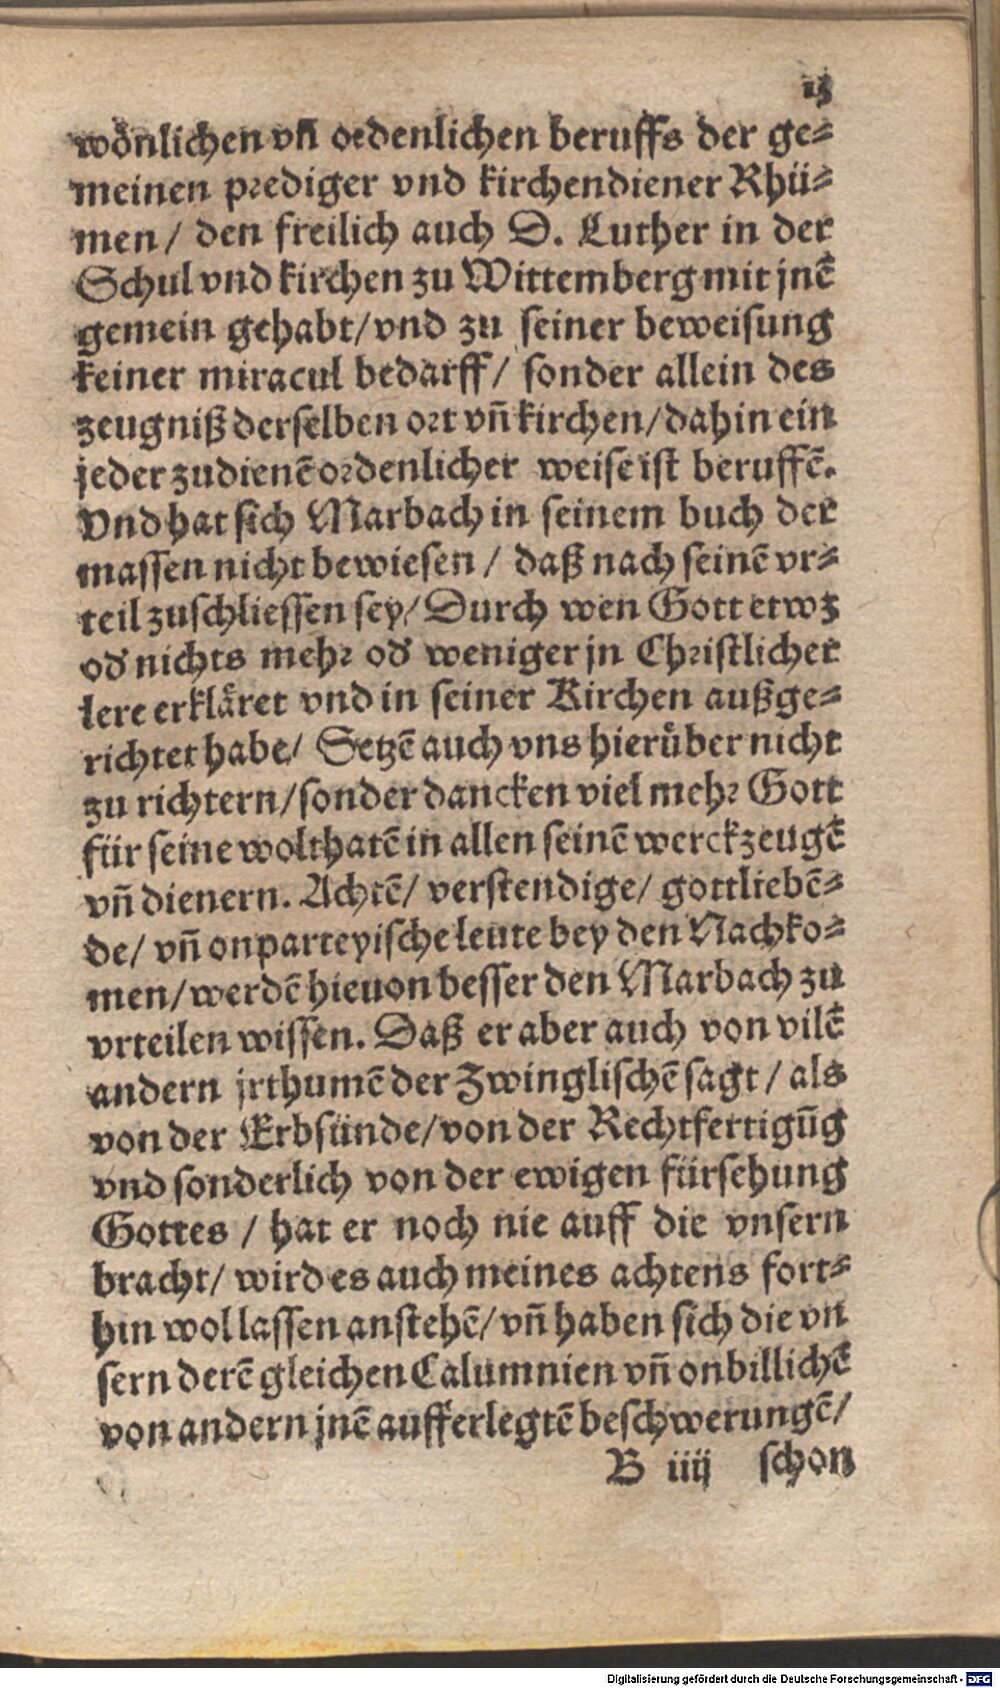 15
wönlichen vñ oedenlichen beruffs der ge=
meinen prediger vnd kirchendiener Rhü=
men / den freilich auch D. Luther in der
Schul vnd kirchen zu Wittemberg mit jnē
gemein gehabt / vnd zu seiner beweisung
keiner miracul bedarff / sonder allein des
zeugniß derselben ort vñ kirchen / dahin ein
jeder zudienē ordenlicher weise ist beruffē.
Vnd hat sich Marbach in seinem buch der
massen nicht bewiesen / daß nach seinē vr=
teil zuschliessen sey / Durch wen Gott etwz
od nichts mehr od weniger jn Christlicher
lere erkläret vnd in seiner Kirchen außge=
richtet habe / Setzē auch vns hierüber nicht
zu richtern / sonder dancken viel mehr Gott
für seine wolthatē in allen seinē werckzeugē
vñ dienern. Achtē / verstendige / gottliebē=
de / vñ onparteyische leute bey den Nachko=
men / werdē hieuon besser den Marbach zu
vrteilen wissen. Daß er aber auch von vilē
andern jrthumē der Zwinglischē sagt / als
von der Erbsünde / von der Rechtfertigūg
vnd sonderlich von der ewigen fürsehung
Gottes / hat er noch nie auff die vnsern
bracht / wird es auch meines achtens fort=
hin wol lassen anstehē / vñ haben sich die vn
sern derē gleichen Calumnien vñ onbillichē
von andern jnē aufferlegtē beschwerungē /
B iiij schon
Digitalisierung gefördert durch die Deutsche Forschungsgemeinschaft - DFG